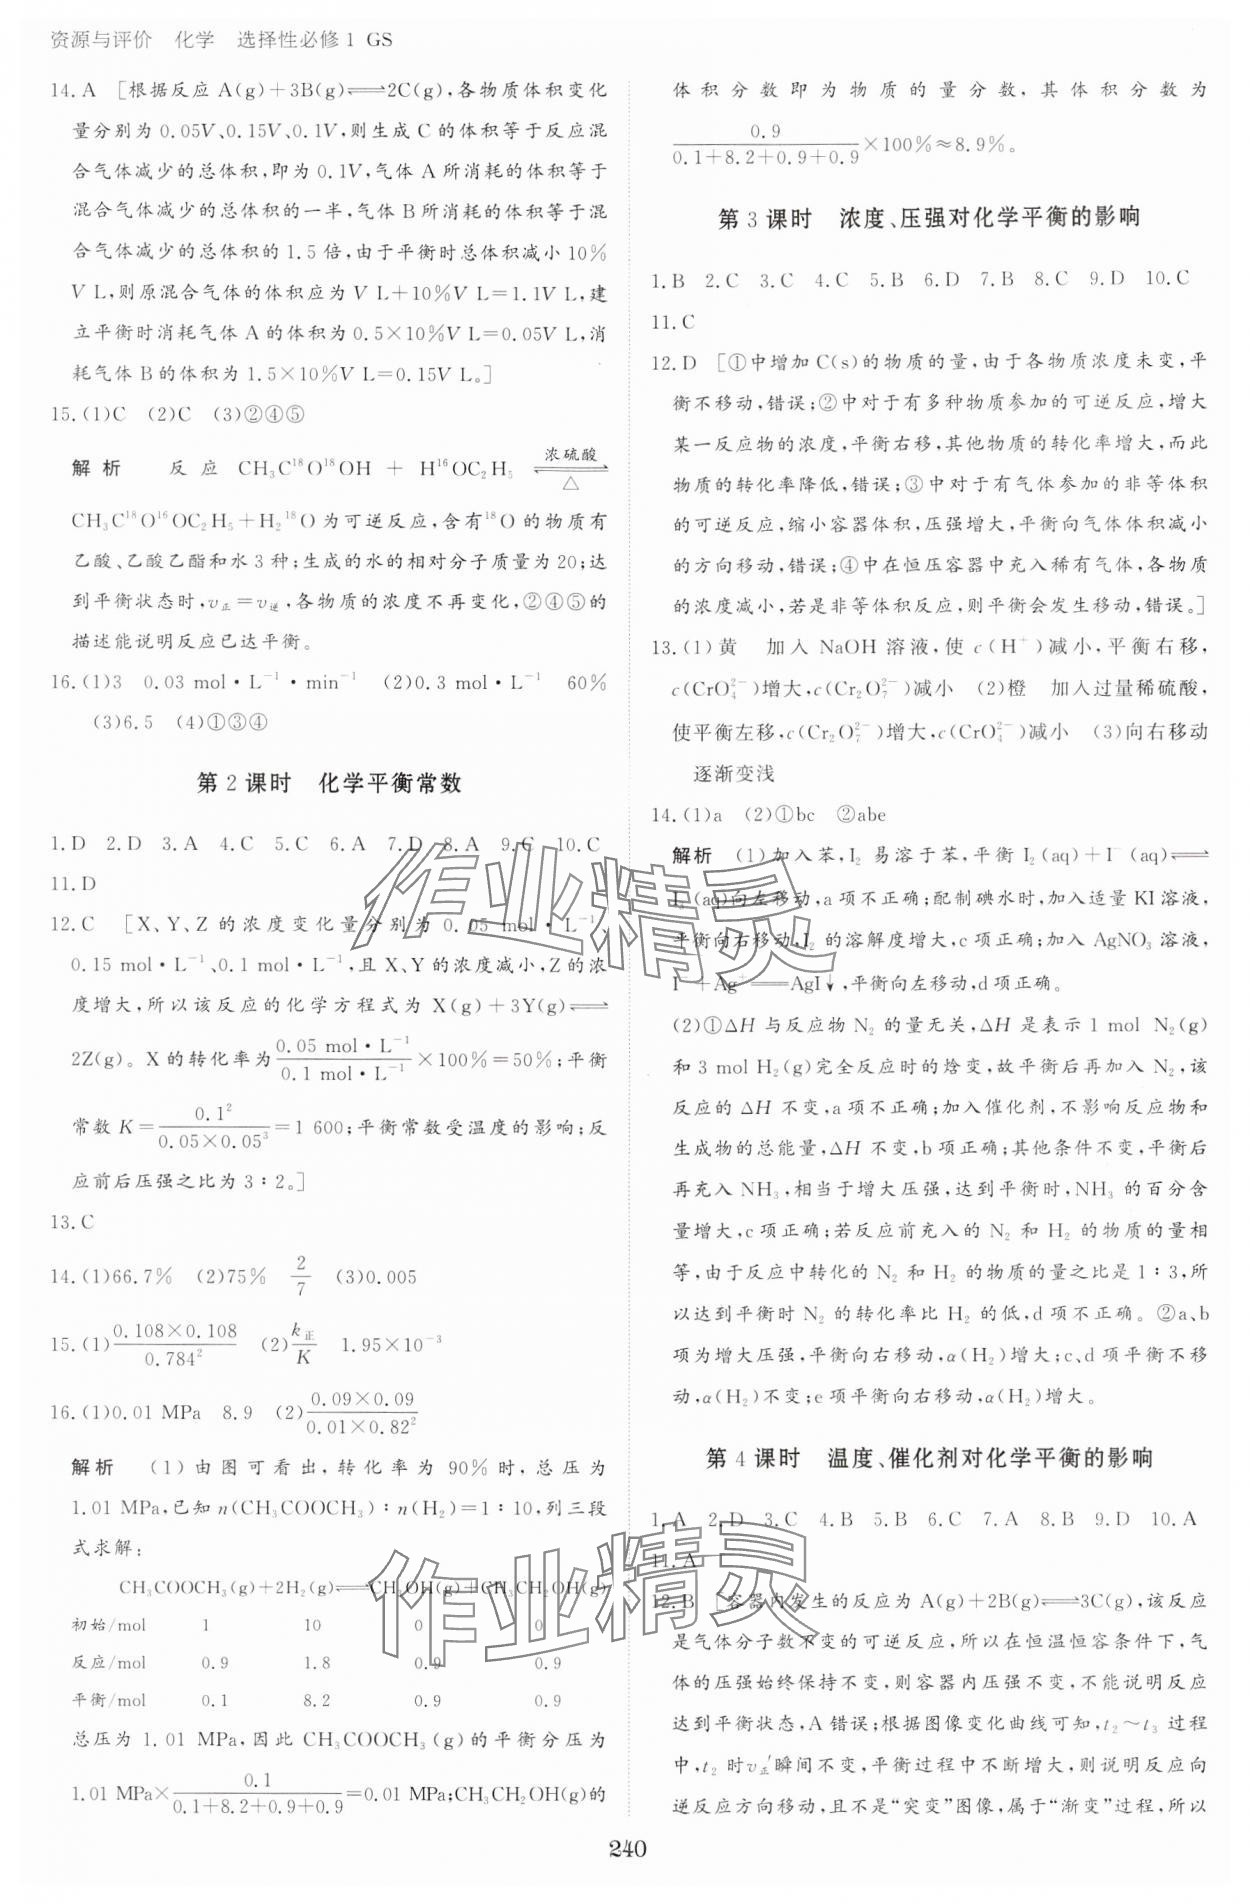 资源与评价 化学 选择性必修1 GS
14.A [根据反应 A(g)+3B(g)⇌2C(g),各物质体积变化
量分别为 0.05V、0.15V、0.1V,则生成 C 的体积等于反应混
合气体减少的总体积,即为 0.1V,气体 A 所消耗的体积等于
混合气体减少的总体积的一半,气体 B 所消耗的体积等于混
合气体减少的总体积的 1.5 倍,由于平衡时总体积减小 10%
V L,则原混合气体的体积应为 V L+10%V L=1.1V L,建
立平衡时消耗气体 A 的体积为 0.5×10%V L=0.05V L,消
耗气体 B 的体积为 1.5×10%V L=0.15V L。]
15.(1)C (2)C (3)②④⑤
解析 反应 CH₃C¹⁸O¹⁸OH + H¹⁶OC₂H₅ ⇌(浓硫酸/△)
CH₃C¹⁸O¹⁶OC₂H₅+H₂¹⁸O 为可逆反应,含有¹⁸O 的物质有
乙酸、乙酸乙酯和水 3 种;生成的水的相对分子质量为 20;达
到平衡状态时,v正=v逆,各物质的浓度不再变化,②④⑤的
描述能说明反应已达平衡。
16.(1)3 0.03 mol·L⁻¹·min⁻¹ (2)0.3 mol·L⁻¹ 60%
(3)6.5 (4)①③④
第 2 课时 化学平衡常数
1.D 2.D 3.A 4.C 5.C 6.A 7.D 8.A 9.C 10.C
11.D
12.C [X、Y、Z 的浓度变化量分别为 0.05 mol·L⁻¹、
0.15 mol·L⁻¹、0.1 mol·L⁻¹,且 X、Y 的浓度减小,Z 的浓
度增大,所以该反应的化学方程式为 X(g)+3Y(g)⇌
2Z(g)。X 的转化率为 0.05 mol·L⁻¹/0.1 mol·L⁻¹ ×100%=50%;平衡
常数 K= 0.1²/(0.05×0.05³) =1 600;平衡常数受温度的影响;反
应前后压强之比为 3∶2。]
13.C
14.(1)66.7% (2)75% 2/7 (3)0.005
15.(1) 0.108×0.108/0.784² (2) k正/K 1.95×10⁻³
16.(1)0.01 MPa 8.9 (2) 0.09×0.09/(0.01×0.82²)
解析 (1)由图可看出,转化率为 90%时,总压为
1.01 MPa,已知 n(CH₃COOCH₃)∶n(H₂)=1∶10,列三段
式求解:
CH₃COOCH₃(g)+2H₂(g)⇌CH₃OH(g)+CH₃CH₂OH(g)
初始/mol 1 10 0 0
反应/mol 0.9 1.8 0.9 0.9
平衡/mol 0.1 8.2 0.9 0.9
总压为 1.01 MPa,因此 CH₃COOCH₃(g)的平衡分压为
1.01 MPa× 0.1/(0.1+8.2+0.9+0.9) =0.01 MPa;CH₃CH₂OH(g)的
体积分数即为物质的量分数,其体积分数为
0.9/(0.1+8.2+0.9+0.9) ×100%≈8.9%。
第 3 课时 浓度、压强对化学平衡的影响
1.B 2.C 3.C 4.C 5.B 6.D 7.B 8.C 9.D 10.C
11.C
12.D [①中增加 C(s)的物质的量,由于各物质浓度未变,平
衡不移动,错误;②中对于有多种物质参加的可逆反应,增大
某一反应物的浓度,平衡右移,其他物质的转化率增大,而此
物质的转化率降低,错误;③中对于有气体参加的非等体积
的可逆反应,缩小容器体积,压强增大,平衡向气体体积减小
的方向移动,错误;④中在恒压容器中充入稀有气体,各物质
的浓度减小,若是非等体积反应,则平衡会发生移动,错误。]
13.(1)黄 加入 NaOH 溶液,使 c(H⁺)减小,平衡右移,
c(CrO₄²⁻)增大,c(Cr₂O₇²⁻)减小 (2)橙 加入过量稀硫酸,
使平衡左移,c(Cr₂O₇²⁻)增大,c(CrO₄²⁻)减小 (3)向右移动
逐渐变浅
14.(1)a (2)①bc ②abe
解析 (1)加入苯,I₂ 易溶于苯,平衡 I₂(aq)+I⁻(aq)⇌
I₃⁻(aq)向左移动,a 项不正确;配制碘水时,加入适量 KI 溶液,
平衡向右移动,I₂ 的溶解度增大,c 项正确;加入 AgNO₃ 溶液,
I⁻+Ag⁺══AgI↓,平衡向左移动,d 项正确。
(2)①ΔH 与反应物 N₂ 的量无关,ΔH 是表示 1 mol N₂(g)
和 3 mol H₂(g)完全反应时的焓变,故平衡后再加入 N₂,该
反应的 ΔH 不变,a 项不正确;加入催化剂,不影响反应物和
生成物的总能量,ΔH 不变,b 项正确;其他条件不变,平衡后
再充入 NH₃,相当于增大压强,达到平衡时,NH₃ 的百分含
量增大,c 项正确;若反应前充入的 N₂ 和 H₂ 的物质的量相
等,由于反应中转化的 N₂ 和 H₂ 的物质的量之比是 1∶3,所
以达到平衡时 N₂ 的转化率比 H₂ 的低,d 项不正确。②a、b
项为增大压强,平衡向右移动,α(H₂)增大;c、d 项平衡不移
动,α(H₂)不变;e 项平衡向右移动,α(H₂)增大。
第 4 课时 温度、催化剂对化学平衡的影响
1.A 2.D 3.C 4.B 5.B 6.C 7.A 8.B 9.D 10.A
11.A
12.B [容器内发生的反应为 A(g)+2B(g)⇌3C(g),该反应
是气体分子数不变的可逆反应,所以在恒温恒容条件下,气
体的压强始终保持不变,则容器内压强不变,不能说明反应
达到平衡状态,A 错误;根据图像变化曲线可知,t₂~t₃ 过程
中,t₂ 时 v′正瞬间不变,平衡过程中不断增大,则说明反应向
逆反应方向移动,且不是“突变”图像,属于“渐变”过程,所以
240
作业精灵
作业精灵